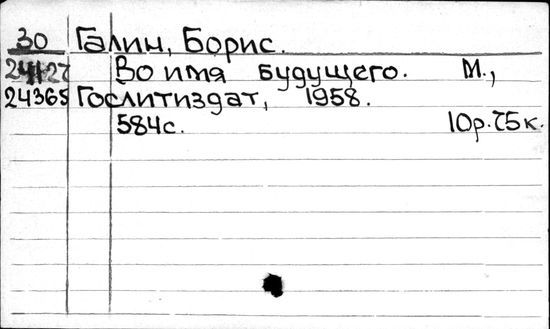 30 Галин, Борис.
Во имя будущего. М.,
24365 Гослитиздат, 1958.
584с. 10р.75к.